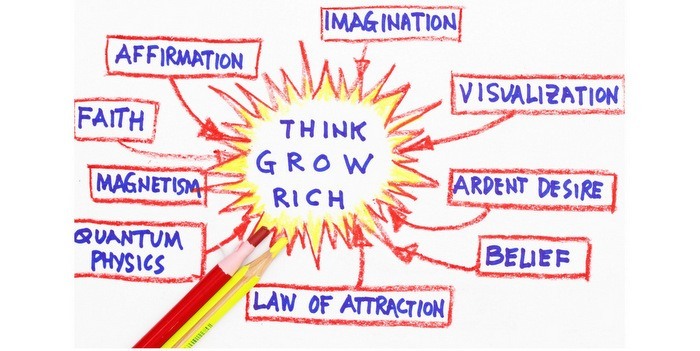 IMAGINATION
AFFIRMATION
VISUALIZATION
FAITH
THINK
GROW
RICH
MAGNETISM
ARDENT DESIRE
QUANTUM
PHYSICS
BELIEF
LAW OF ATTRACTION